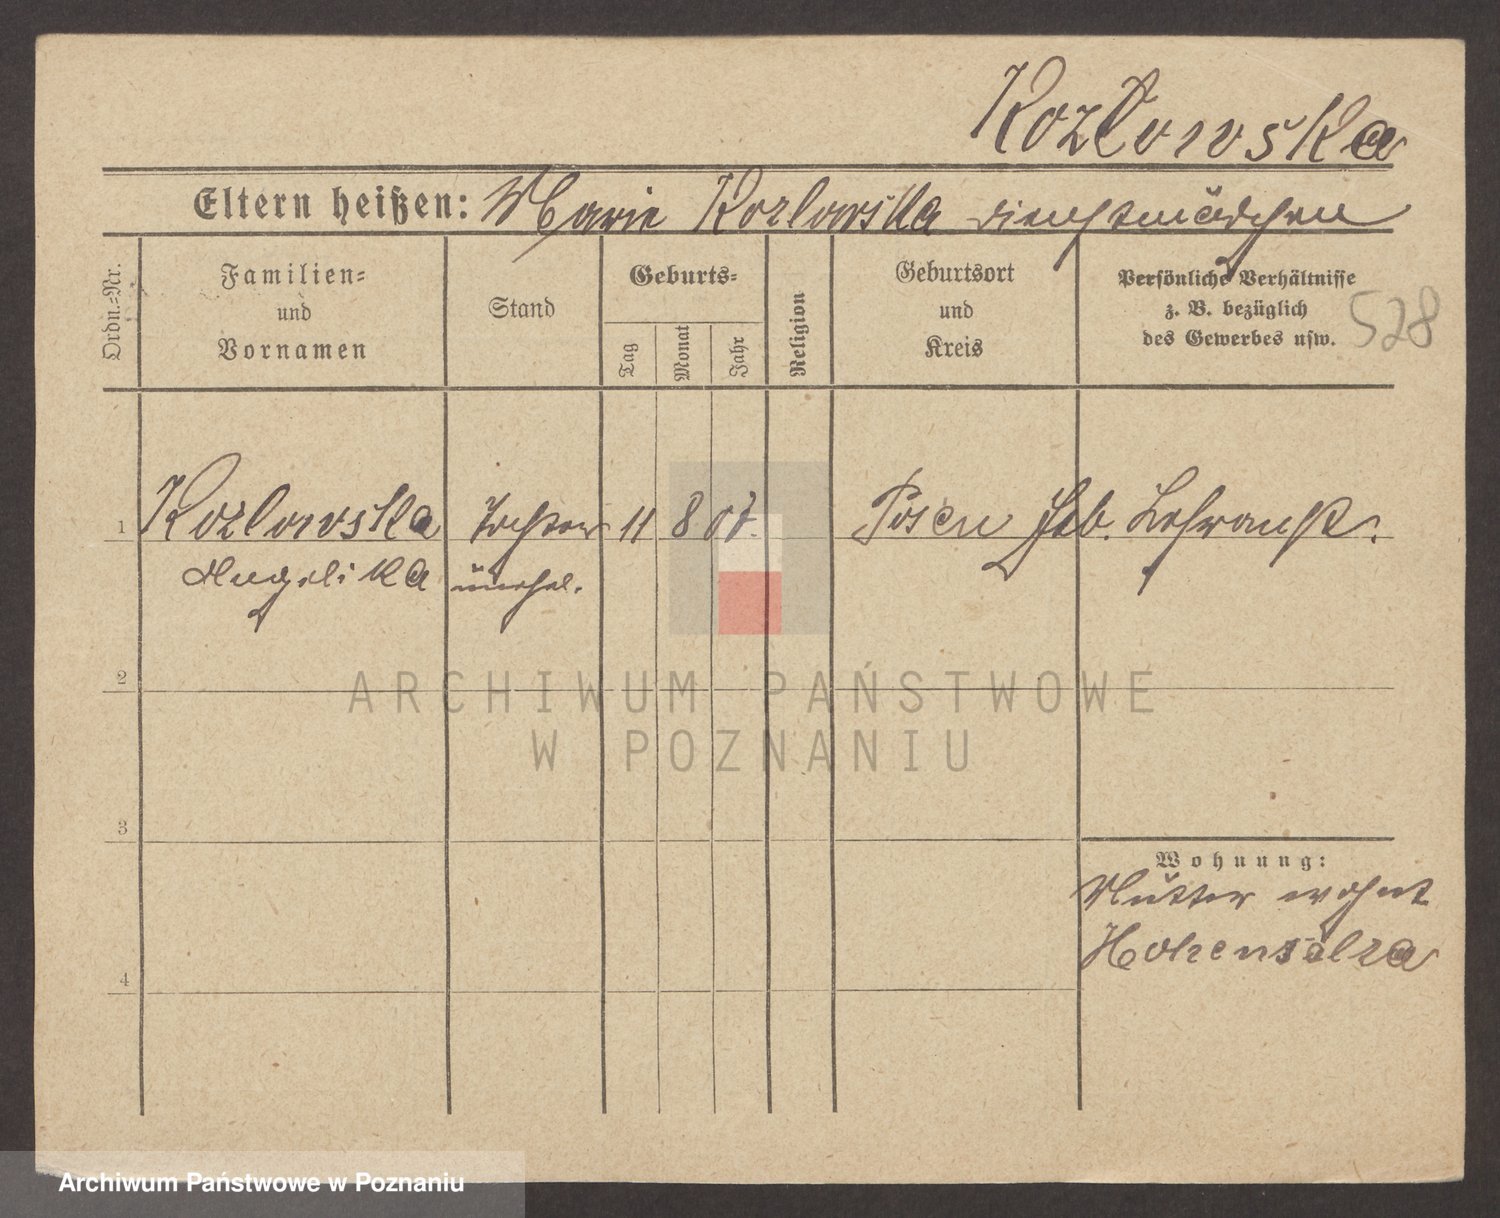 Kozłowska
Eltern heißen: Marie Kozlowska Dienstmädchen
Ordn.=Nr.
Familien=
und
Vornamen
Stand
Geburts=
Tag
Monat
Jahr
Religion
Geburtsort
und
Kreis
Persönliche Verhältnisse
z. B. bezüglich
des Gewerbes usw.
528
1 Kozlowska Tochter 11 8 07. Posen Heb. Lehranst.
Angelika unehel.
2
3
Wohnung:
Mutter wohnt
Hohensalza
4
ARCHIWUM PAŃSTWOWE
W POZNANIU
Archiwum Państwowe w Poznaniu